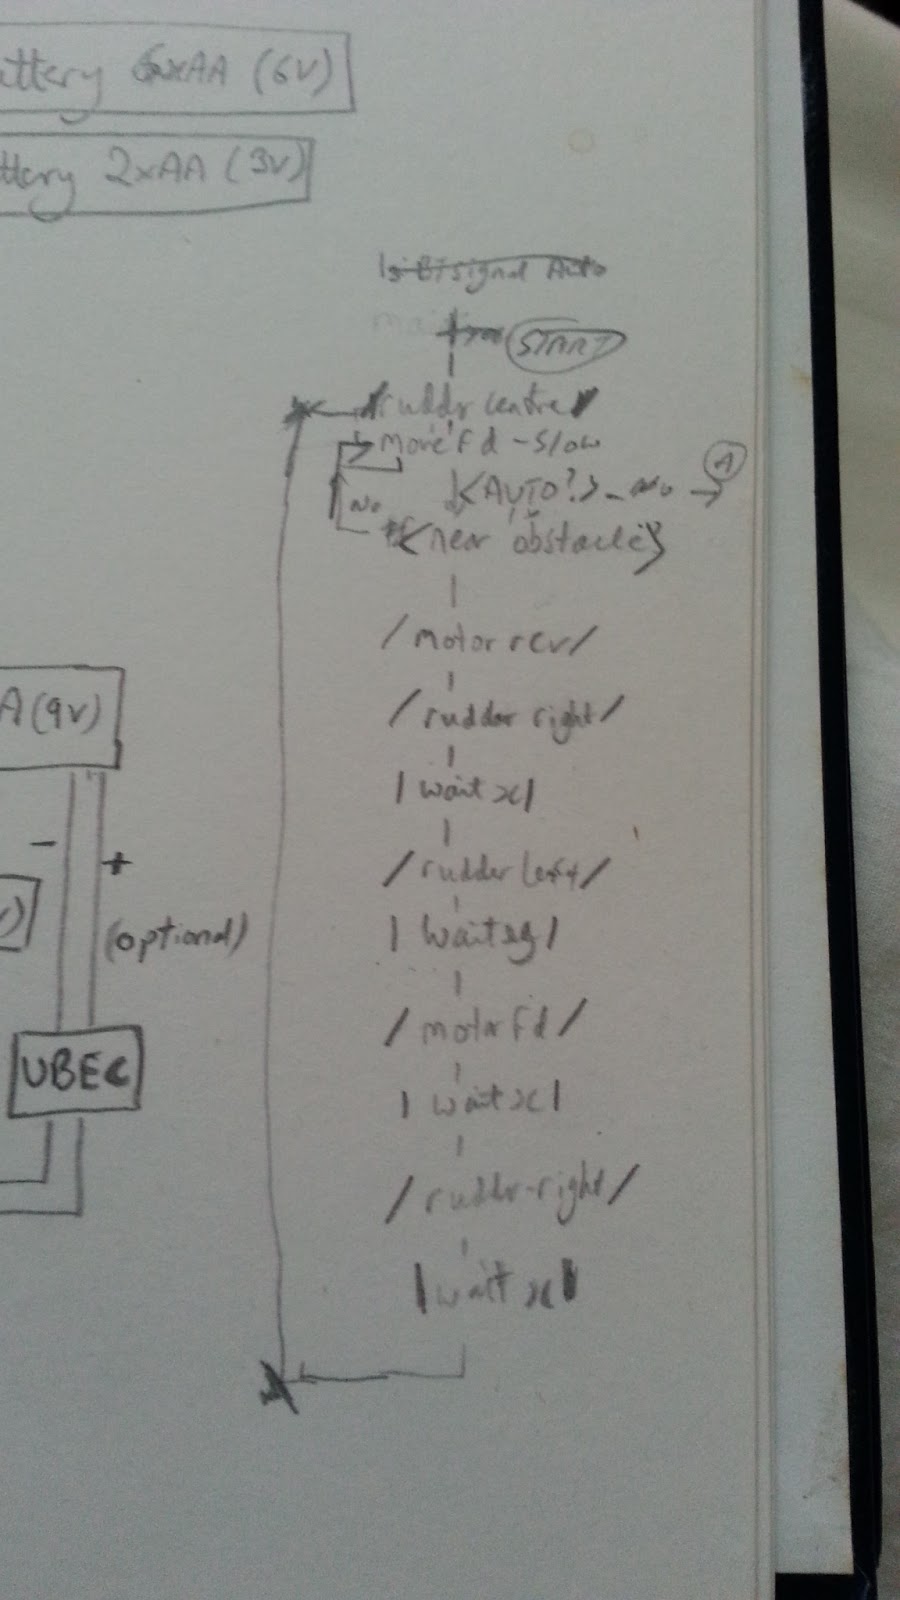 6xAA (6V)
2xAA (3V)
Auto
START
rudder centre
move Fd - Slow
<AUTO?> - no → A
No
<near obstacle>
/motor rev/
/rudder right/
|wait x|
/rudder left/
|wait y|
/motor Fd/
|wait x|
/rudder-right/
|wait x|
A(9V)
- +
(optional)
UBEC